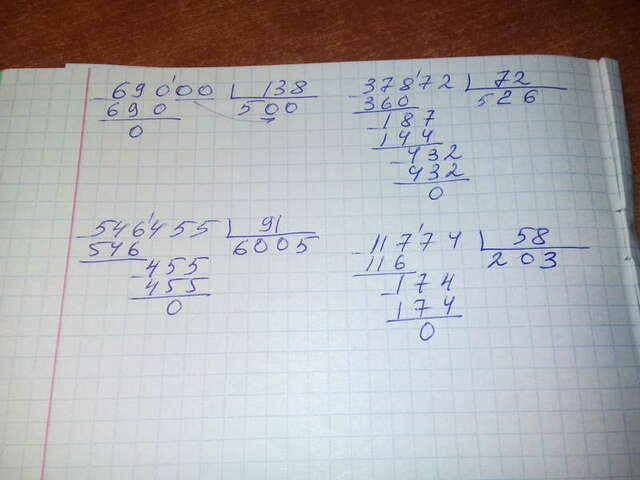 69000 138
690 500
0
37872 72
360 526
187
144
432
432
0
546455 91
546 6005
455
455
0
11774 58
116 203
174
174
0